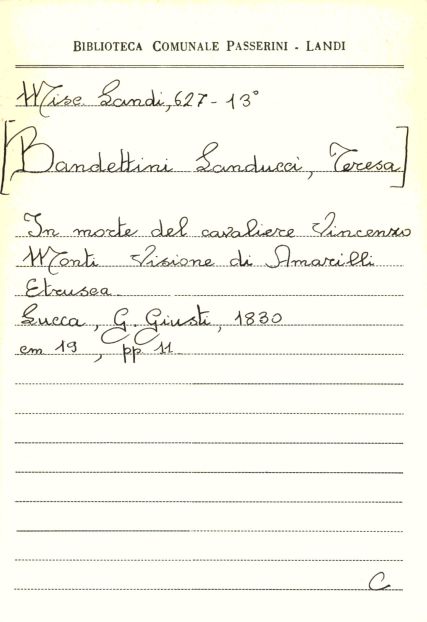 BIBLIOTECA COMUNALE PASSERINI - LANDI
Misc. Landi, 627 - 13°
[Bandettini Landucci, Teresa]
In morte del cavaliere Vincenzo
Monti Visione di Amarilli
Etrusca.
Lucca, G. Giusti, 1830
cm 19, pp 11
C